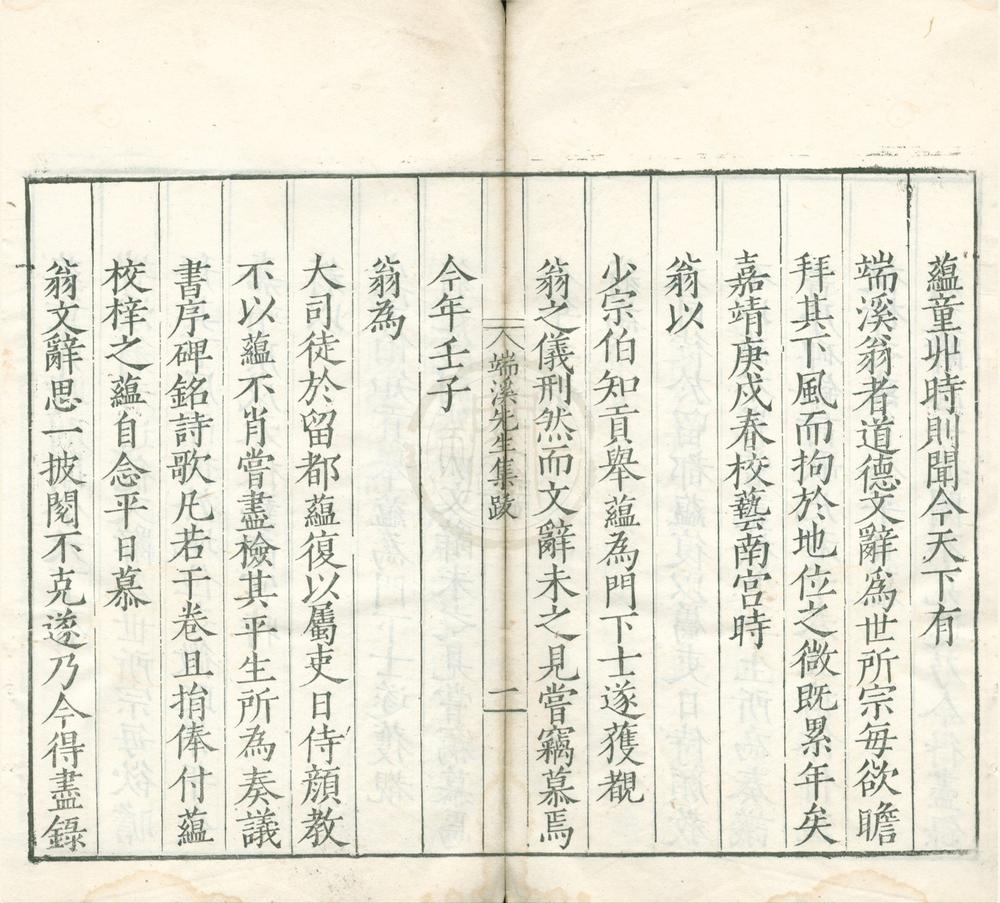 蘊童丱時則聞今天下有
端溪翁者道德文辭為世所宗每欲瞻
拜其下風而拘於地位之微既累年矣
嘉靖庚戌春校藝南宫時
翁以
少宗伯知貢舉蘊為門下士遂獲覩
翁之儀刑然而文辭未之見嘗竊慕焉
端溪先生集跋
二
今年壬子
翁為
大司徒於留都蘊復以屬吏日侍顔教
不以蘊不肖嘗盡檢其平生所為奏議
書序碑銘詩歌凡若干卷且捐俸付蘊
校梓之蘊自念平日慕
翁文辭思一披閱不克遂乃今得盡錄